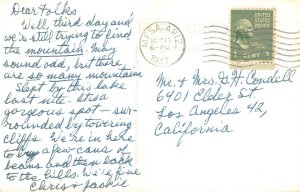 Dear Folks
Well, third day and
we're still trying to find
the mountain. May
sound odd, but there
are so many mountains
Slept by this lake
last nite. Its a
gorgeous spot - sur-
rounded by towering
cliffs. We're in here
to buy a few cans of
beans and then back
to the hills. We're fine
Chris + Jackie
MESA, ARIZ.
6-PM
1947
UNITED STATES
POSTAGE
1 CENT 1
Mr. & Mrs. D. H. Condell
6401 Elder St
Los Angeles 42,
California